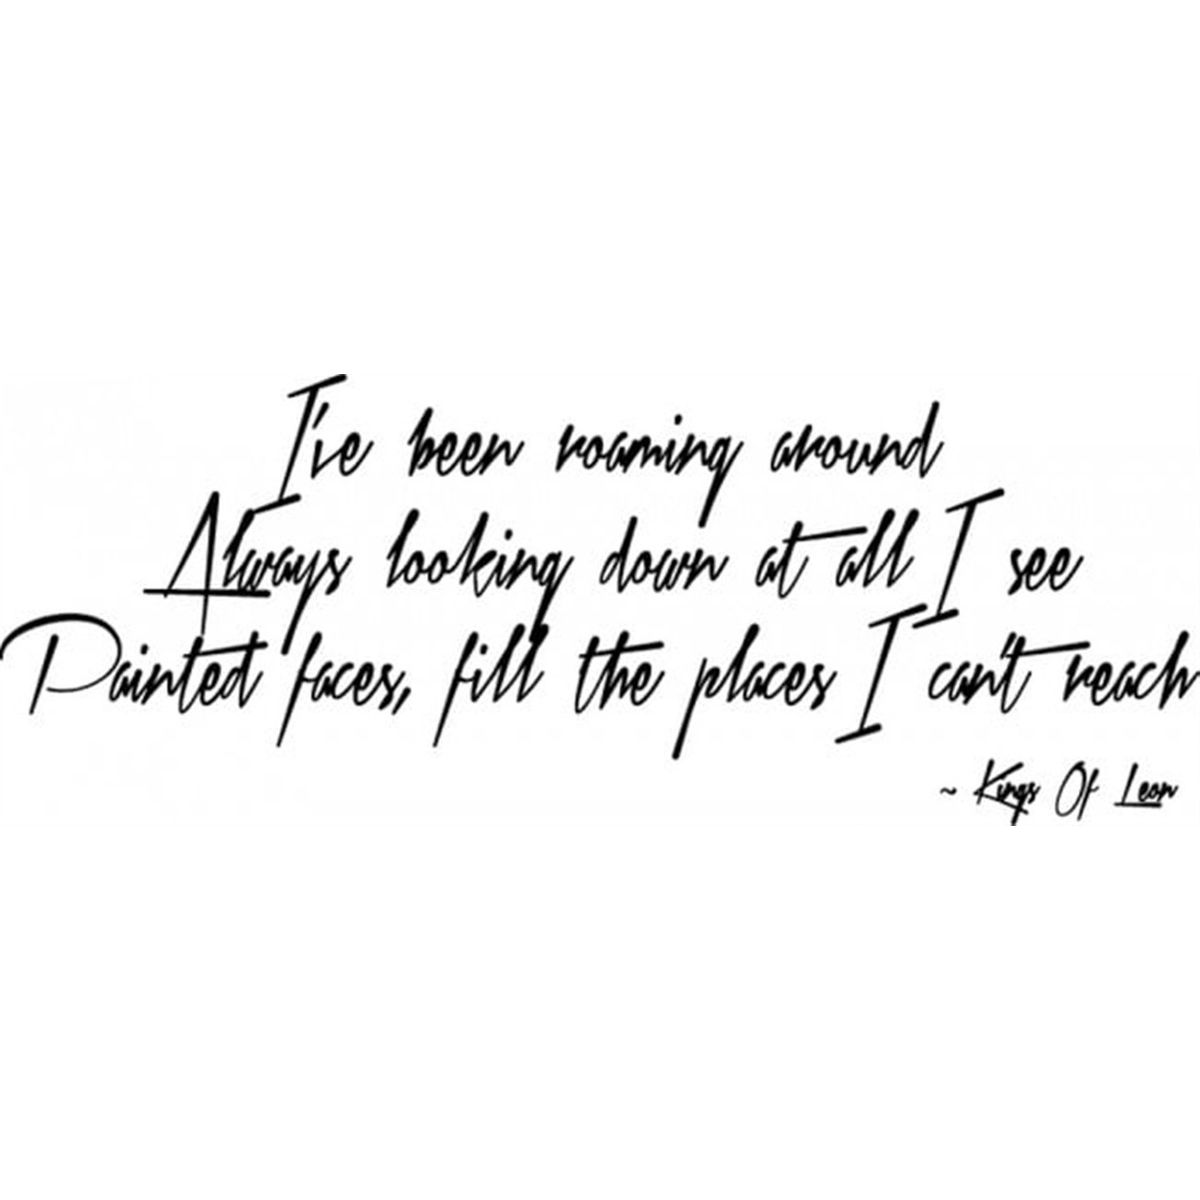 I've been roaming around
Always looking down at all I see
Painted faces, fill the places I can't reach
~ Kings Of Leon